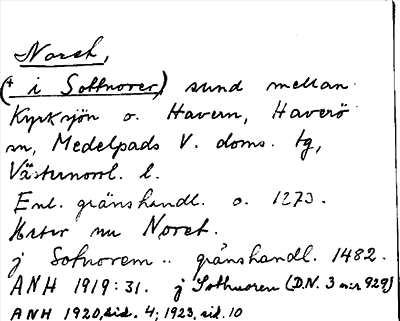 Noret,
(⁺ i Sottnorer,) sund mellan
Kyrksjön o. Havern, Haverö
sn, Medelpads V. doms. tg,
Västernorrl. l.
Enl. gränshandl. o. 1273.
Heter nu Noret.
j Sotnorem .. gränshandl. 1482.
ANH 1919:31. j Sothnoren (D.N. 3 nr 929)
ANH 1920, sid. 4; 1923, sid. 10